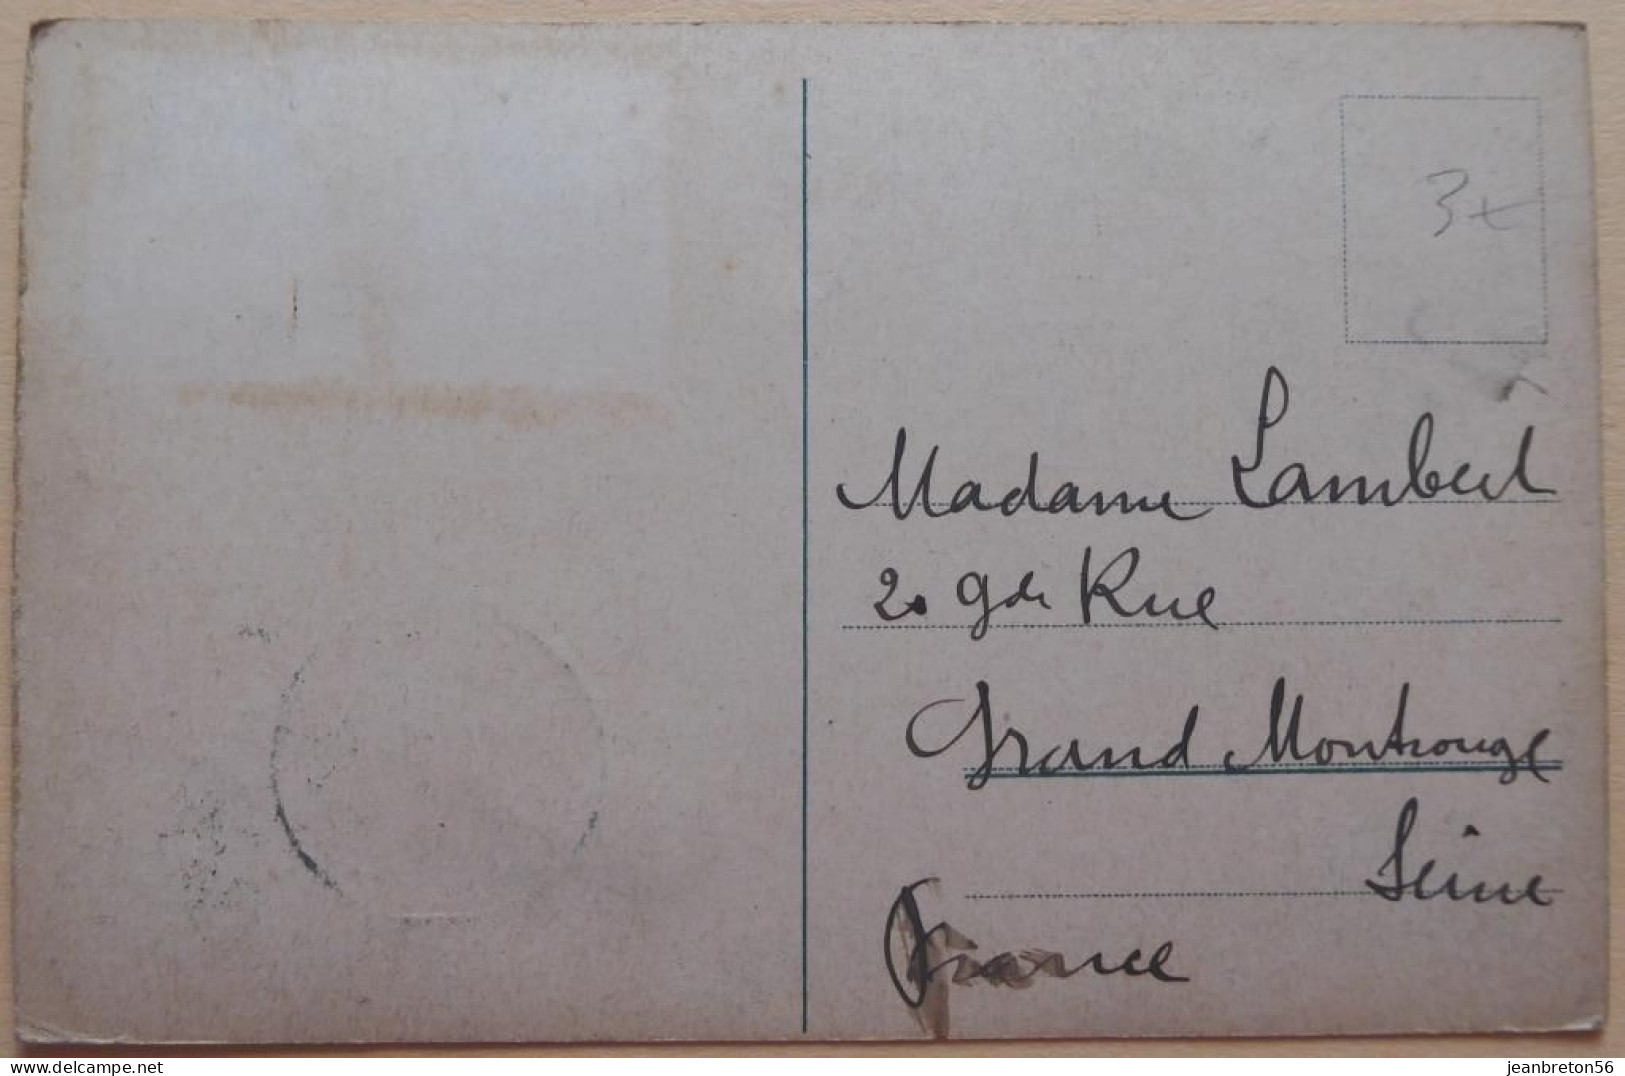 3€
Madame Lambert
20 gde Rue
Grand Montrouge
Seine
France
delcampe.net
jeanbreton56